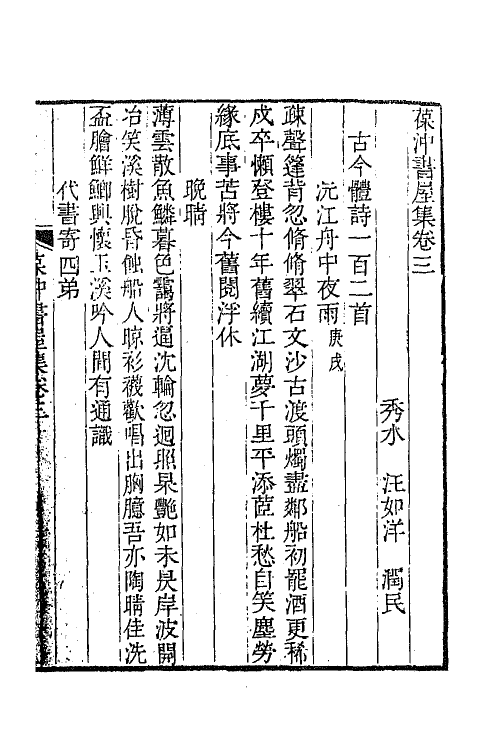 葆沖書屋集卷三
秀水 汪如洋 潤民
古今體詩一百二首
沅江舟中夜雨庚戌
疎聲篷背忽翛翛翠石文沙古渡頭燭盡鄰船初罷酒更稀
戍卒懶登樓十年舊續江湖夢千里平添茝杜愁自笑塵勞
緣底事苦將今舊閱浮休
晚晴
薄雲散魚鱗暮色靄將逼沈輪忽迴照杲艷如未昃岸波開
冶笑溪樹脫昏蝕船人晾衫襪歡唱出胸臆吾亦陶晴佳洗
盃膾鮮鯽興懷玉溪吟人間有通識
代書寄四弟
葆沖書屋集卷三